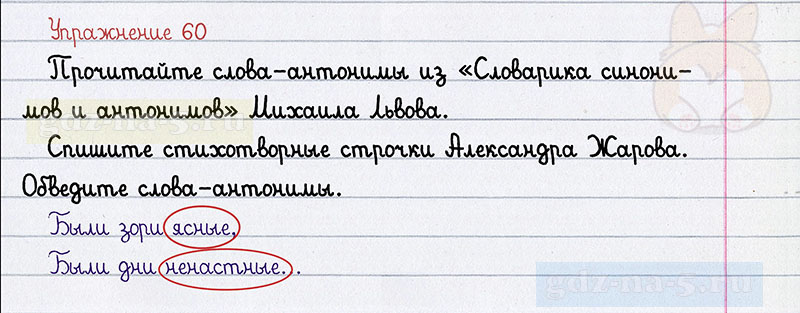 Упражнение 60
Прочитайте слова-антонимы из «Словарика синони-
мов и антонимов» Михаила Львова.
gdz-na-5.ru
Спишите стихотворные строчки Александра Жарова.
Обведите слова-антонимы.
Были зори ясные,
Были дни ненастные...
gdz-na-5.ru